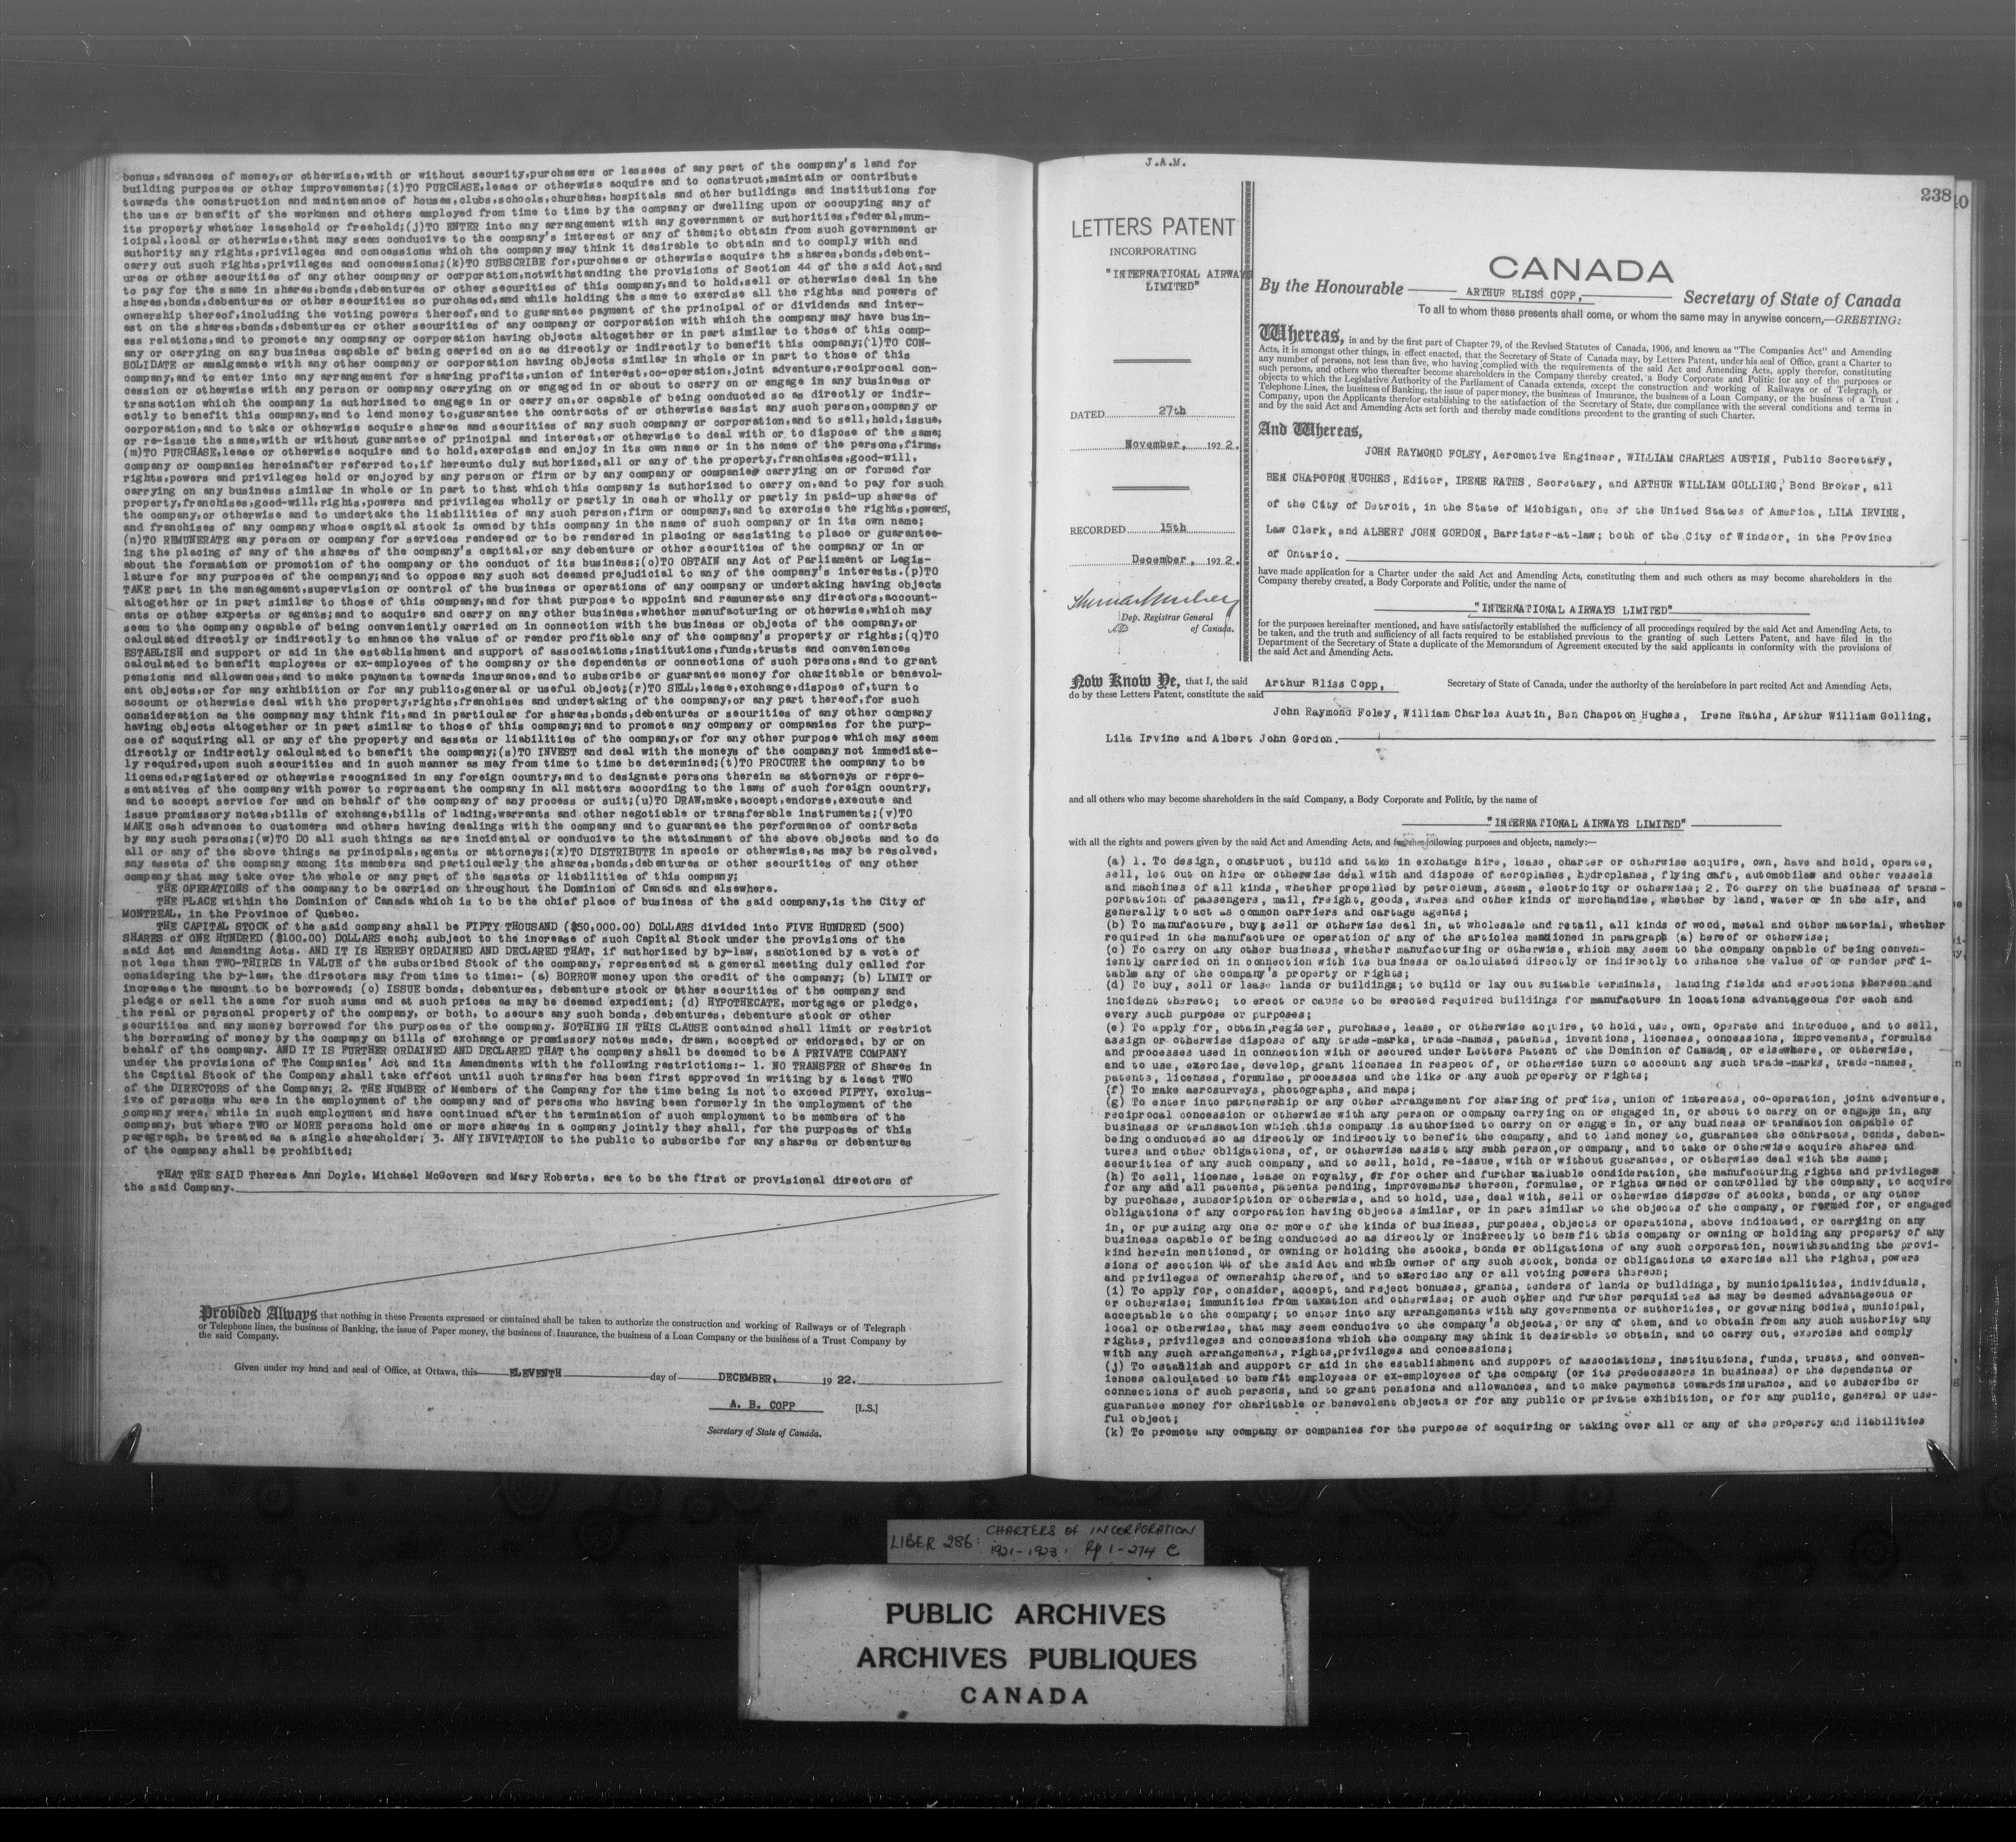 bonus,advances of money,or otherwise,with or without security,purchasers or lessees of any part of the company's land for
building purposes or other improvements;(i)TO PURCHASE,lease or otherwise acquire and to construct,maintain or contribute
towards the construction and maintenance of houses,clubs,schools,churches,hospitals and other buildings and institutions for
the use or benefit of the workmen and others employed from time to time by the company or dwelling upon or occupying any of
its property whether leasehold or freehold;(j)TO ENTER into any arrangement with any government or authorities,federal,mun-
icipal,local or otherwise,that may seem conducive to the company's interest or any of them;to obtain from such government or
authority any rights,privileges and concessions which the company may think it desirable to obtain and to comply with and
carry out such rights,privileges and concessions;(k)TO SUBSCRIBE for,purchase or otherwise acquire the shares,bonds,debent-
ures or other securities of any other company or corporation,notwithstanding the provisions of Section 44 of the said Act,and
to pay for the same in shares,bonds,debentures or other securities of this company,and to hold,sell or otherwise deal in the
shares,bonds,debentures or other securities so purchased,and while holding the same to exercise all the rights and powers of
ownership thereof,including the voting powers thereof,and to guarantee payment of the principal of or dividends and inter-
est on the shares,bonds,debentures or other securities of any company or corporation with which the company may have busin-
ess relations,and to promote any company or corporation having objects altogether or in part similar to those of this comp-
any or carrying on any business capable of being carried on so as directly or indirectly to benefit this company;(l)TO CON-
SOLIDATE or amalgamate with any other company or corporation having objects similar in whole or in part to those of this
company,and to enter into any arrangement for sharing profits,union of interest,co-operation,joint adventure,reciprocal con-
cession or otherwise with any person or company carrying on or engaged in or about to carry on or engage in any business or
transaction which the company is authorized to engage in or carry on,or capable of being conducted so as directly or indir-
ectly to benefit this company,and to lend money to,guarantee the contracts of or otherwise assist any such person,company or
corporation,and to take or otherwise acquire shares and securities of any such company or corporation,and to sell,hold,issue,
or re-issue the same,with or without guarantee of principal and interest,or otherwise to deal with or to dispose of the same;
(m)TO PURCHASE,lease or otherwise acquire and to hold,exercise and enjoy in its own name or in the name of the persons,firms,
company or companies hereinafter referred to,if hereunto duly authorized,all or any of the property,franchises,good-will,
rights,powers and privileges held or enjoyed by any person or firm or by any company or companies carrying on or formed for
carrying on any business similar in whole or in part to that which this company is authorized to carry on,and to pay for such
property,franchises,good-will,rights,powers and privileges wholly or partly in cash or wholly or partly in paid-up shares of
the company,or otherwise and to undertake the liabilities of any such person,firm or company,and to exercise the rights,powers,
and franchises of any company whose capital stock is owned by this company in the name of such company or in its own name;
(n)TO REMUNERATE any person or company for services rendered or to be rendered in placing or assisting to place or guarantee-
ing the placing of any of the shares of the company's capital,or any debenture or other securities of the company or in or
about the formation or promotion of the company or the conduct of its business;(o)TO OBTAIN any Act of Parliament or Legis-
lature for any purposes of the company;and to oppose any such act deemed prejudicial to any of the company's interests.(p)TO
TAKE part in the management,supervision or control of the business or operations of any company or undertaking having objects
altogether or in part similar to those of this company,and for that purpose to appoint and remunerate any directors,account-
ants or other experts or agents;and to acquire and carry on any other business,whether manufacturing or otherwise,which may
seem to the company capable of being conveniently carried on in connection with the business or objects of the company,or
calculated directly or indirectly to enhance the value of or render profitable any of the company's property or rights;(q)TO
ESTABLISH and support or aid in the establishment and support of associations,institutions,funds,trusts and conveniences
calculated to benefit employees or ex-employees of the company or the dependents or connections of such persons,and to grant
pensions and allowances,and to make payments towards insurance,and to subscribe or guarantee money for charitable or benevol-
ent objects,or for any exhibition or for any public,general or useful object;(r)TO SELL,lease,exchange,dispose of,turn to
account or otherwise deal with the property,rights,franchises and undertaking of the company,or any part thereof,for such
consideration as the company may think fit,and in particular for shares,bonds,debentures or securities of any other company
having objects altogether or in part similar to those of this company;and to promote any company or companies for the purp-
ose of acquiring all or any of the property and assets or liabilities of the company,or for any other purpose which may seem
directly or indirectly calculated to benefit the company;(s)TO INVEST and deal with the moneys of the company not immediate-
ly required,upon such securities and in such manner as may from time to time be determined;(t)TO PROCURE the company to be
licensed,registered or otherwise recognized in any foreign country,and to designate persons therein as attorneys or repre-
sentatives of the company with power to represent the company in all matters according to the laws of such foreign country,
and to accept service for and on behalf of the company of any process or suit;(u)TO DRAW,make,accept,endorse,execute and
issue promissory notes,bills of exchange,bills of lading,warrants and other negotiable or transferable instruments;(v)TO
MAKE cash advances to customers and others having dealings with the company and to guarantee the performance of contracts
by any such persons;(w)TO DO all such things as are incidental or conducive to the attainment of the above objects and to do
all or any of the above things as principals,agents or attorneys;(x)TO DISTRIBUTE in specie or otherwise,as may be resolved,
any assets of the company among its members and particularly the shares,bonds,debentures or other securities of any other
company that may take over the whole or any part of the assets or liabilities of this company;
THE OPERATIONS of the company to be carried on throughout the Dominion of Canada and elsewhere.
THE PLACE within the Dominion of Canada which is to be the chief place of business of the said company,is the City of
MONTREAL, in the Province of Quebec.
THE CAPITAL STOCK of the said company shall be FIFTY THOUSAND ($50,000.00) DOLLARS divided into FIVE HUNDRED (500)
SHARES of ONE HUNDRED ($100.00) DOLLARS each; subject to the increase of such Capital Stock under the provisions of the
said Act and Amending Acts. AND IT IS HEREBY ORDAINED AND DECLARED THAT, if authorized by by-law, sanctioned by a vote of
not less than TWO-THIRDS in VALUE of the subscribed Stock of the company, represented at a general meeting duly called for
considering the by-law, the directors may from time to time:- (a) BORROW money upon the credit of the company; (b) LIMIT or
increase the amount to be borrowed; (c) ISSUE bonds, debentures, debenture stock or other securities of the company and
pledge or sell the same for such sums and at such prices as may be deemed expedient; (d) HYPOTHECATE, mortgage or pledge,
the real or personal property of the company, or both, to secure any such bonds, debentures, debenture stock or other
securities and any money borrowed for the purposes of the company. NOTHING IN THIS CLAUSE contained shall limit or restrict
the borrowing of money by the company on bills of exchange or promissory notes made, drawn, accepted or endorsed, by or on
behalf of the company. AND IT IS FURTHER ORDAINED AND DECLARED THAT the company shall be deemed to be A PRIVATE COMPANY
under the provisions of The Companies' Act and its Amendments with the following restrictions:- 1. NO TRANSFER of Shares in
the Capital Stock of the Company shall take effect until such transfer has been first approved in writing by a least TWO
of the DIRECTORS of the Company; 2. THE NUMBER of Members of the Company for the time being is not to exceed FIFTY, exclus-
ive of persons who are in the employment of the company and of persons who having been formerly in the employment of the
company were, while in such employment and have continued after the termination of such employment to be members of the
company, but where TWO or MORE persons hold one or more shares in a company jointly they shall, for the purposes of this
paragraph, be treated as a single shareholder; 3. ANY INVITATION to the public to subscribe for any shares or debentures
of the company shall be prohibited;
THAT THE SAID Theresa Ann Doyle, Michael McGovern and Mary Roberts, are to be the first or provisional directors of
the said Company.
Provided Always that nothing in these Presents expressed or contained shall be taken to authorize the construction and working of Railways or of Telegraph
or Telephone lines, the business of Banking, the issue of Paper money, the business of Insurance, the business of a Loan Company or the business of a Trust Company by
the said Company.
Given under my hand and seal of Office, at Ottawa, this ELEVENTH day of DECEMBER, 19 22.
A. B. COPP [L.S.]
Secretary of State of Canada.
J.A.M.
238
LETTERS PATENT
INCORPORATING
"INTERNATIONAL AIRWAYS
LIMITED"
DATED 27th
November, 192 2.
RECORDED 15th
December, 192 2.
Dep. Registrar General
of Canada.
CANADA
By the Honourable ARTHUR BLISS COPP, Secretary of State of Canada
To all to whom these presents shall come, or whom the same may in anywise concern,—GREETING:
Whereas, in and by the first part of Chapter 79, of the Revised Statutes of Canada, 1906, and known as "The Companies Act" and Amending
Acts, it is amongst other things, in effect enacted, that the Secretary of State of Canada may, by Letters Patent, under his seal of Office, grant a Charter to
any number of persons, not less than five, who having complied with the requirements of the said Act and Amending Acts, apply therefor, constituting
such persons, and others who thereafter become shareholders in the Company thereby created, a Body Corporate and Politic for any of the purposes or
objects to which the Legislative Authority of the Parliament of Canada extends, except the construction and working of Railways or of Telegraph or
Telephone Lines, the business of Banking, the issue of paper money, the business of Insurance, the business of a Loan Company, or the business of a Trust
Company, upon the Applicants therefor establishing to the satisfaction of the Secretary of State, due compliance with the several conditions and terms in
and by the said Act and Amending Acts set forth and thereby made conditions precedent to the granting of such Charter.
And Whereas,
JOHN RAYMOND FOLEY, Aeromotive Engineer, WILLIAM CHARLES AUSTIN, Public Secretary,
BEN CHAPOTON HUGHES, Editor, IRENE RATHS, Secretary, and ARTHUR WILLIAM GOLLING, Bond Broker, all
of the City of Detroit, in the State of Michigan, one of the United States of America, LILA IRVINE,
Law Clerk, and ALBERT JOHN GORDON, Barrister-at-law; both of the City of Windsor, in the Province
of Ontario.
have made application for a Charter under the said Act and Amending Acts, constituting them and such others as may become shareholders in the
Company thereby created, a Body Corporate and Politic, under the name of
"INTERNATIONAL AIRWAYS LIMITED"
for the purposes hereinafter mentioned, and have satisfactorily established the sufficiency of all proceedings required by the said Act and Amending Acts, to
be taken, and the truth and sufficiency of all facts required to be established previous to the granting of such Letters Patent, and have filed in the
Department of the Secretary of State a duplicate of the Memorandum of Agreement executed by the said applicants in conformity with the provisions of
the said Act and Amending Acts.
Now Know Ye, that I, the said Arthur Bliss Copp, Secretary of State of Canada, under the authority of the hereinbefore in part recited Act and Amending Acts,
do by these Letters Patent, constitute the said
John Raymond Foley, William Charles Austin, Ben Chapoton Hughes, Irene Raths, Arthur William Golling,
Lila Irvine and Albert John Gordon.
and all others who may become shareholders in the said Company, a Body Corporate and Politic, by the name of
"INTERNATIONAL AIRWAYS LIMITED"
with all the rights and powers given by the said Act and Amending Acts, and for the following purposes and objects, namely:—
(a) 1. To design, construct, build and take in exchange hire, lease, charter or otherwise acquire, own, have and hold, operate,
sell, let out on hire or otherwise deal with and dispose of aeroplanes, hydroplanes, flying craft, automobiles and other vessels
and machines of all kinds, whether propelled by petroleum, steam, electricity or otherwise; 2. To carry on the business of trans-
portation of passengers, mail, freight, goods, wares and other kinds of merchandise, whether by land, water or in the air, and
generally to act as common carriers and cartage agents;
(b) To manufacture, buy, sell or otherwise deal in, at wholesale and retail, all kinds of wood, metal and other material, whether
required in the manufacture or operation of any of the articles mentioned in paragraph (a) hereof or otherwise;
(c) To carry on any other business, whether manufacturing or otherwise, which may seem to the company capable of being conven-
iently carried on in connection with its business or calculated directly or indirectly to enhance the value of or render profi-
table any of the company's property or rights;
(d) To buy, sell or lease lands or buildings; to build or lay out suitable terminals, landing fields and erections thereon and
incident thereto; to erect or cause to be erected required buildings for manufacture in locations advantageous for each and
every such purpose or purposes;
(e) To apply for, obtain,register, purchase, lease, or otherwise acquire, to hold, use, own, operate and introduce, and to sell,
assign or otherwise dispose of any trade-marks, trade-names, patents, inventions, licenses, concessions, improvements, formulae
and processes used in connection with or secured under Letters Patent of the Dominion of Canada, or elsewhere, or otherwise,
and to use, exercise, develop, grant licenses in respect of, or otherwise turn to account any such trade-marks, trade-names,
patents, licenses, formulae, processes and the like or any such property or rights;
(f) To make aerosurveys, photographs, and maps;
(g) To enter into partnership or any other arrangement for sharing of profits, union of interests, co-operation, joint adventure,
reciprocal concession or otherwise with any person or company carrying on or engaged in, or about to carry on or engage in, any
business or transaction which this company is authorized to carry on or engage in, or any business or transaction capable of
being conducted so as directly or indirectly to benefit the company, and to lend money to, guarantee the contracts, bonds, deben-
tures and other obligations, of, or otherwise assist any subh person,or company, and to take or otherwise acquire shares and
securities of any such company, and to sell, hold, re-issue, with or without guarantee, or otherwise deal with the same;
(h) To sell, license, lease on royalty, or for other and further valuable consideration, the manufacturing rights and privileges
for any and all patents, patents pending, improvements thereon, formulae, or rights owned or controlled by the company, to acquire
by purchase, subscription or otherwise, and to hold, use, deal with, sell or otherwise dispose of stocks, bonds, or any other
obligations of any corporation having objects similar, or in part similar to the objects of the company, or formed for, or engaged
in, or pursuing any one or more of the kinds of business, purposes, objects or operations, above indicated, or carrying on any
business capable of being conducted so as directly or indirectly to benefit this company or owning or holding any property of any
kind herein mentioned, or owning or holding the stocks, bonds or obligations of any such corporation, notwithstanding the provi-
sions of section 44 of the said Act and while owner of any such stock, bonds or obligations to exercise all the rights, powers
and privileges of ownership thereof, and to exercise any or all voting powers thereon;
(i) To apply for, consider, accept, and reject bonuses, grants, tenders of lands or buildings, by municipalities, individuals,
or otherwise; immunities from taxation and otherwise; or such other and further perquisites as may be deemed advantageous or
acceptable to the company; to enter into any arrangements with any governments or authorities, or governing bodies, municipal,
local or otherwise, that may seem conducive to the company's objects, or any of them, and to obtain from any such authority any
rights, privileges and concessions which the company may think it desirable to obtain, and to carry out, exercise and comply
with any such arrangements, rights,privileges and concessions;
(j) To establish and support or aid in the establishment and support of associations, institutions, funds, trusts, and conven-
iences calculated to benefit employees or ex-employees of the company (or its predecessors in business) or the dependents or
connections of such persons, and to grant pensions and allowances, and to make payments towards insurance, and to subscribe or
guarantee money for charitable or benevolent objects or for any public or private exhibition, or for any public, general or use-
ful object;
(k) To promote any company or companies for the purpose of acquiring or taking over all or any of the property and liabilities
LIBER 286: CHARTERS of INCORPORATION
1921-1923. Pp 1-274 C
PUBLIC ARCHIVES
ARCHIVES PUBLIQUES
CANADA